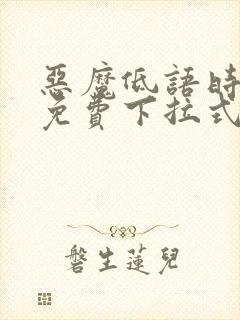 惡魔低語時
免費下拉式
磐生蓮兒